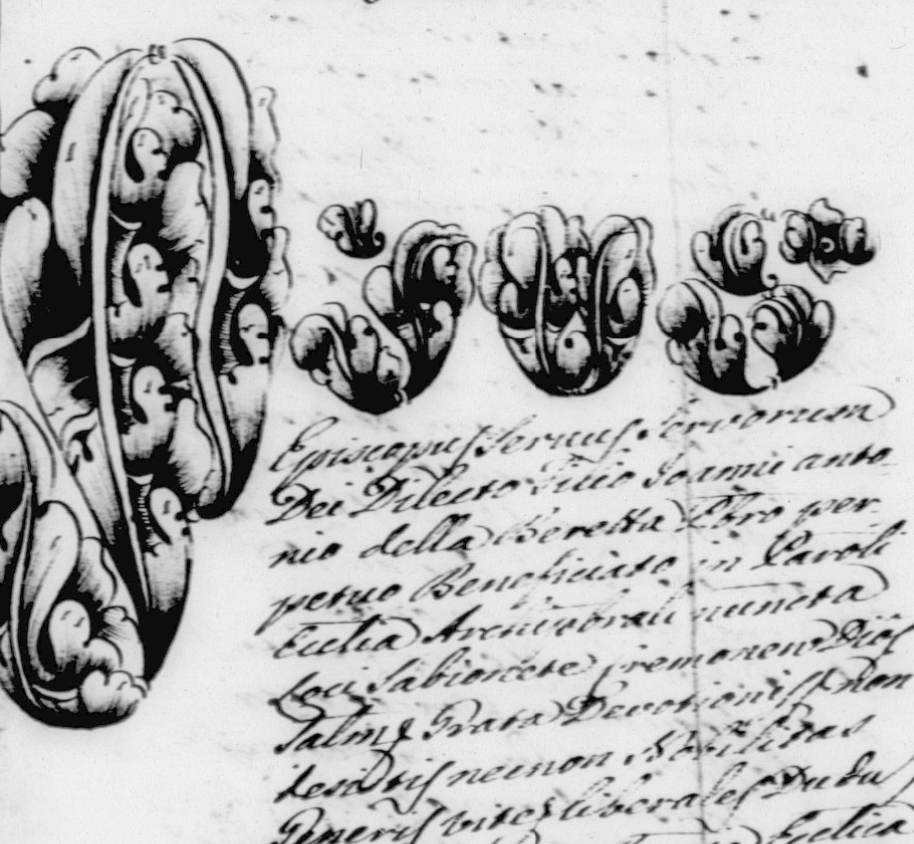 Episcopus Servus Servorum
Dei Dilecto Filio Joanni anto
nio della Beretta Pbro per
petuo Beneficiato in Paroli
Ecclia nuncta
loci Sabionete Cremonen Dioc
Salm & Grata Devotionis non
necnon Nobilitas
Generis vite liberales Dudu
Ecclica